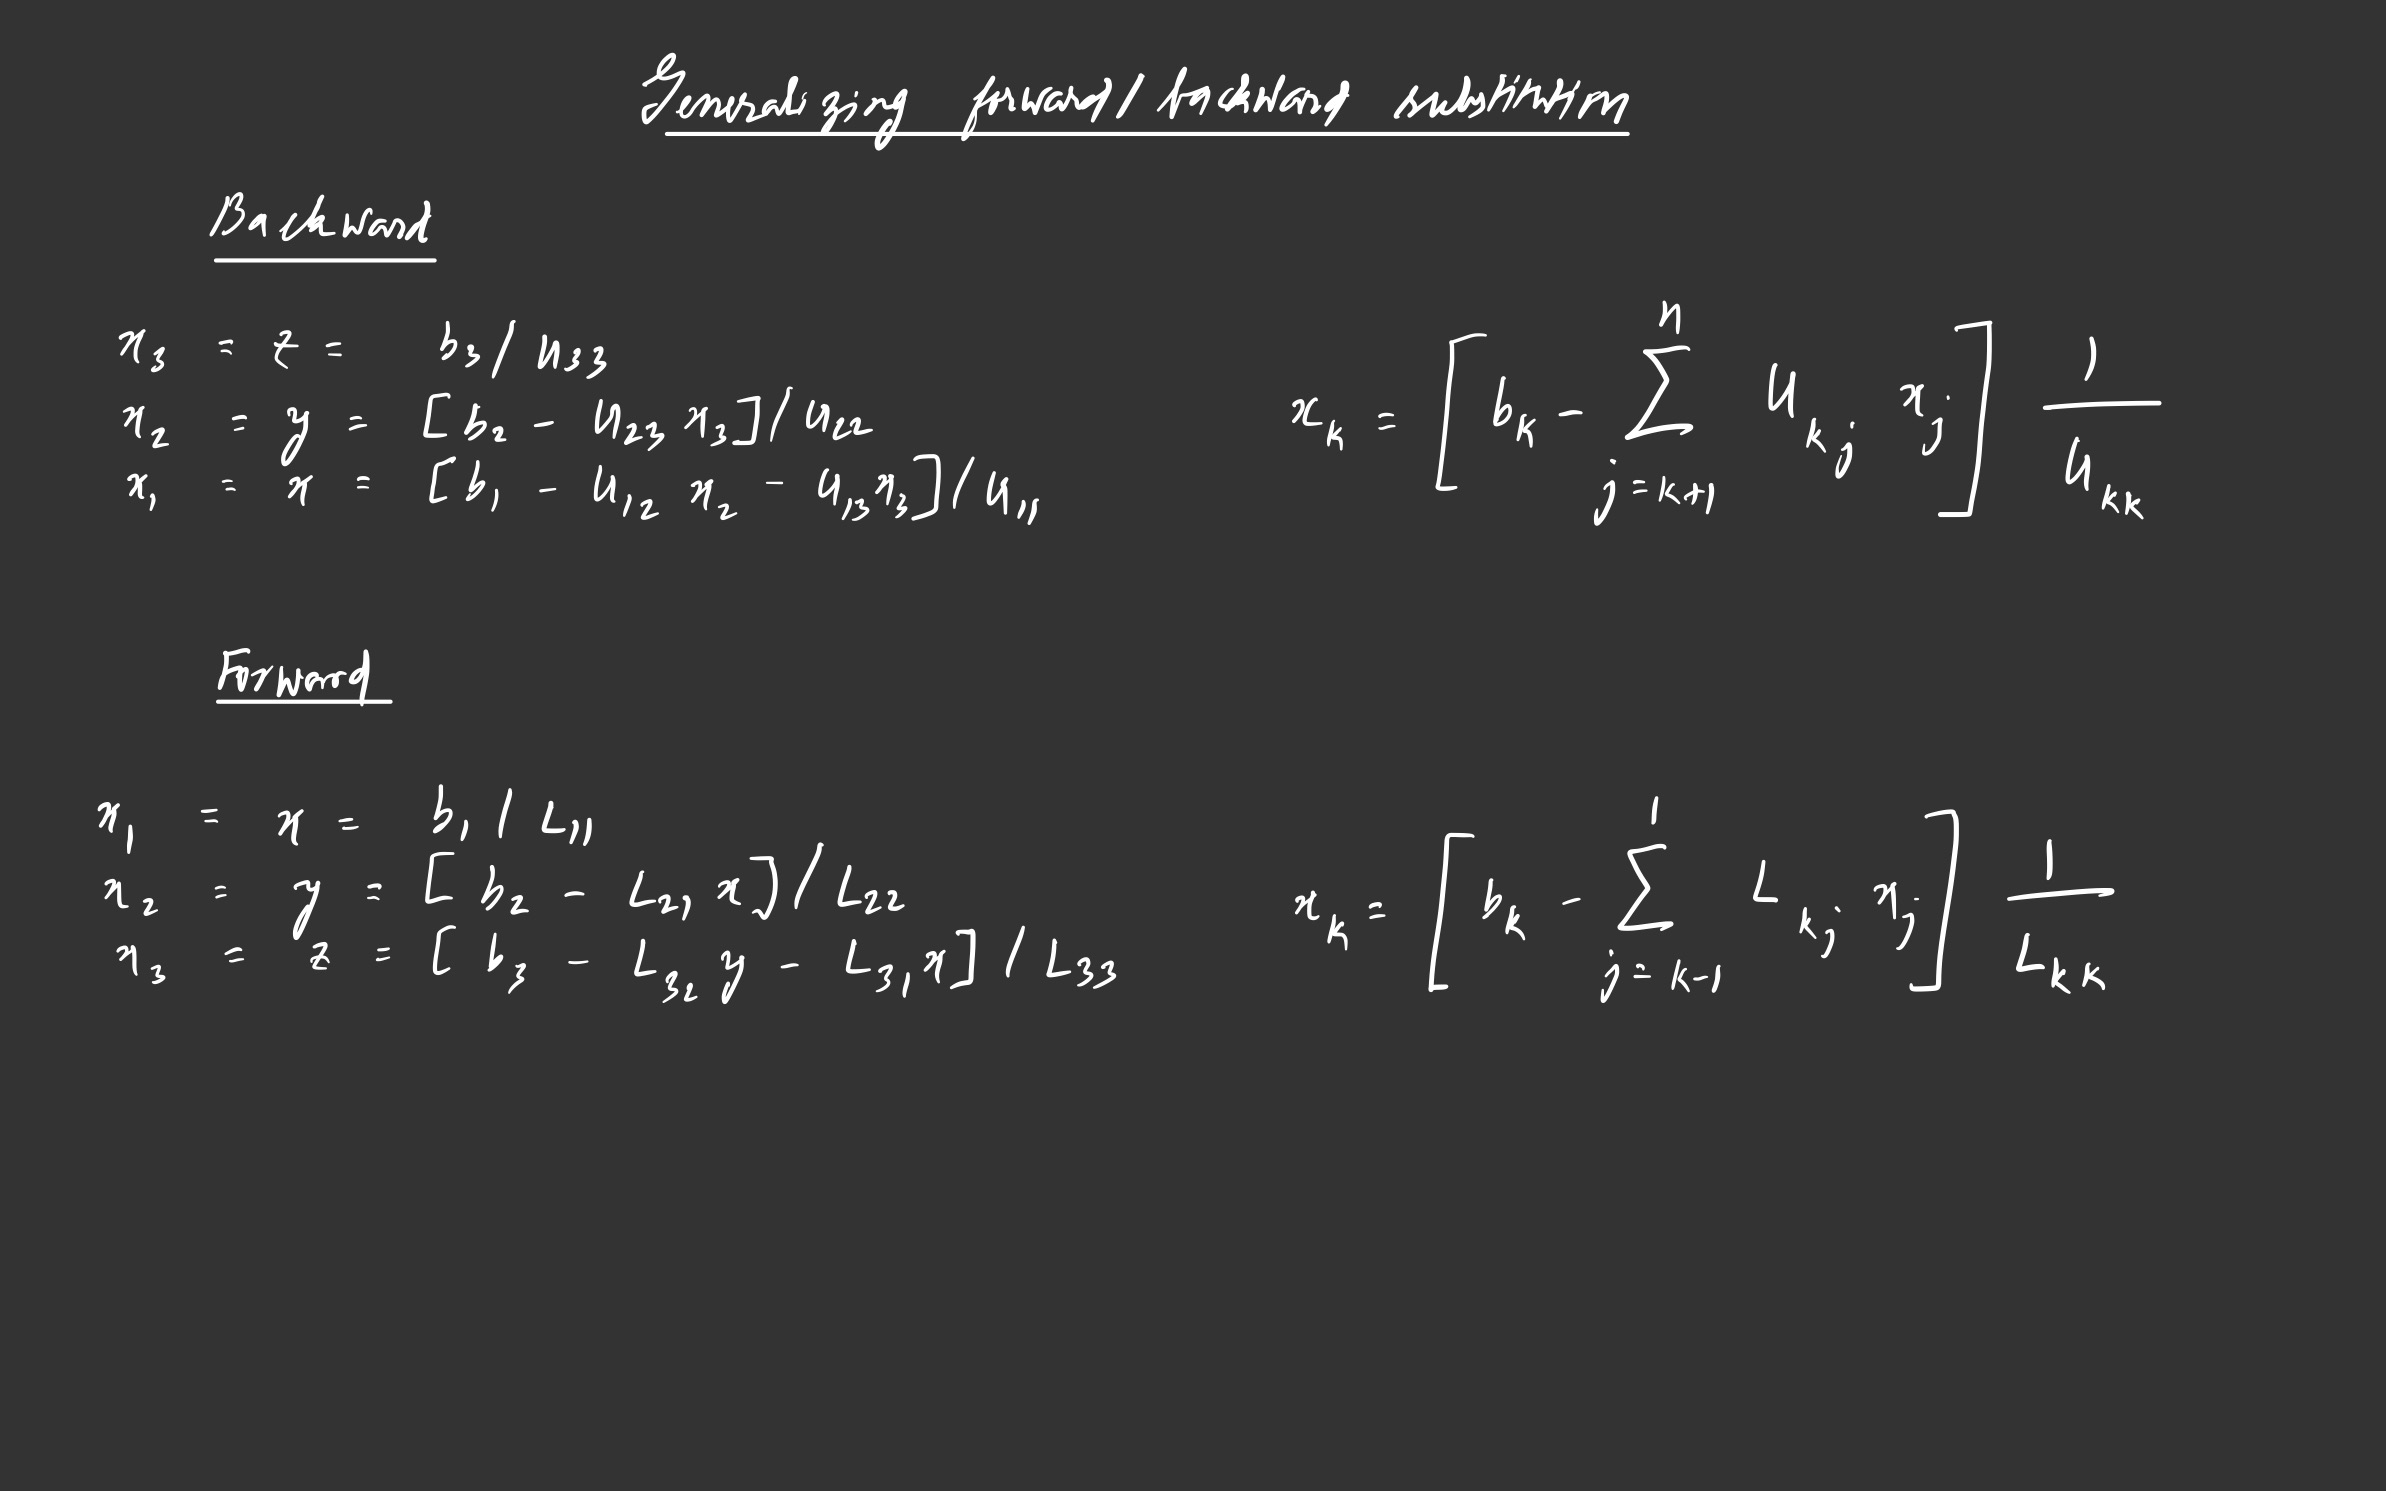 Generalizing forward/backward substitution
Backward
x₃ = z = b₃/u₃₃
x₂ = y = [b₂ - u₂₃ x₃]/u₂₂
x₁ = x = [b₁ - u₁₂ x₂ - u₁₃x₃]/u₁₁
x_k = [b_k - ∑_{j=k+1}^{n} u_{kj} x_j] 1/u_{kk}
Forward
x₁ = x = b₁/L₁₁
x₂ = y = [b₂ - L₂₁ x]/L₂₂
x₃ = z = [b₃ - L₃₂ y - L₃₁x]/L₃₃
x_k = [b_k - ∑_{j=k-1}^{1} L_{kj} x_j] 1/L_{kk}